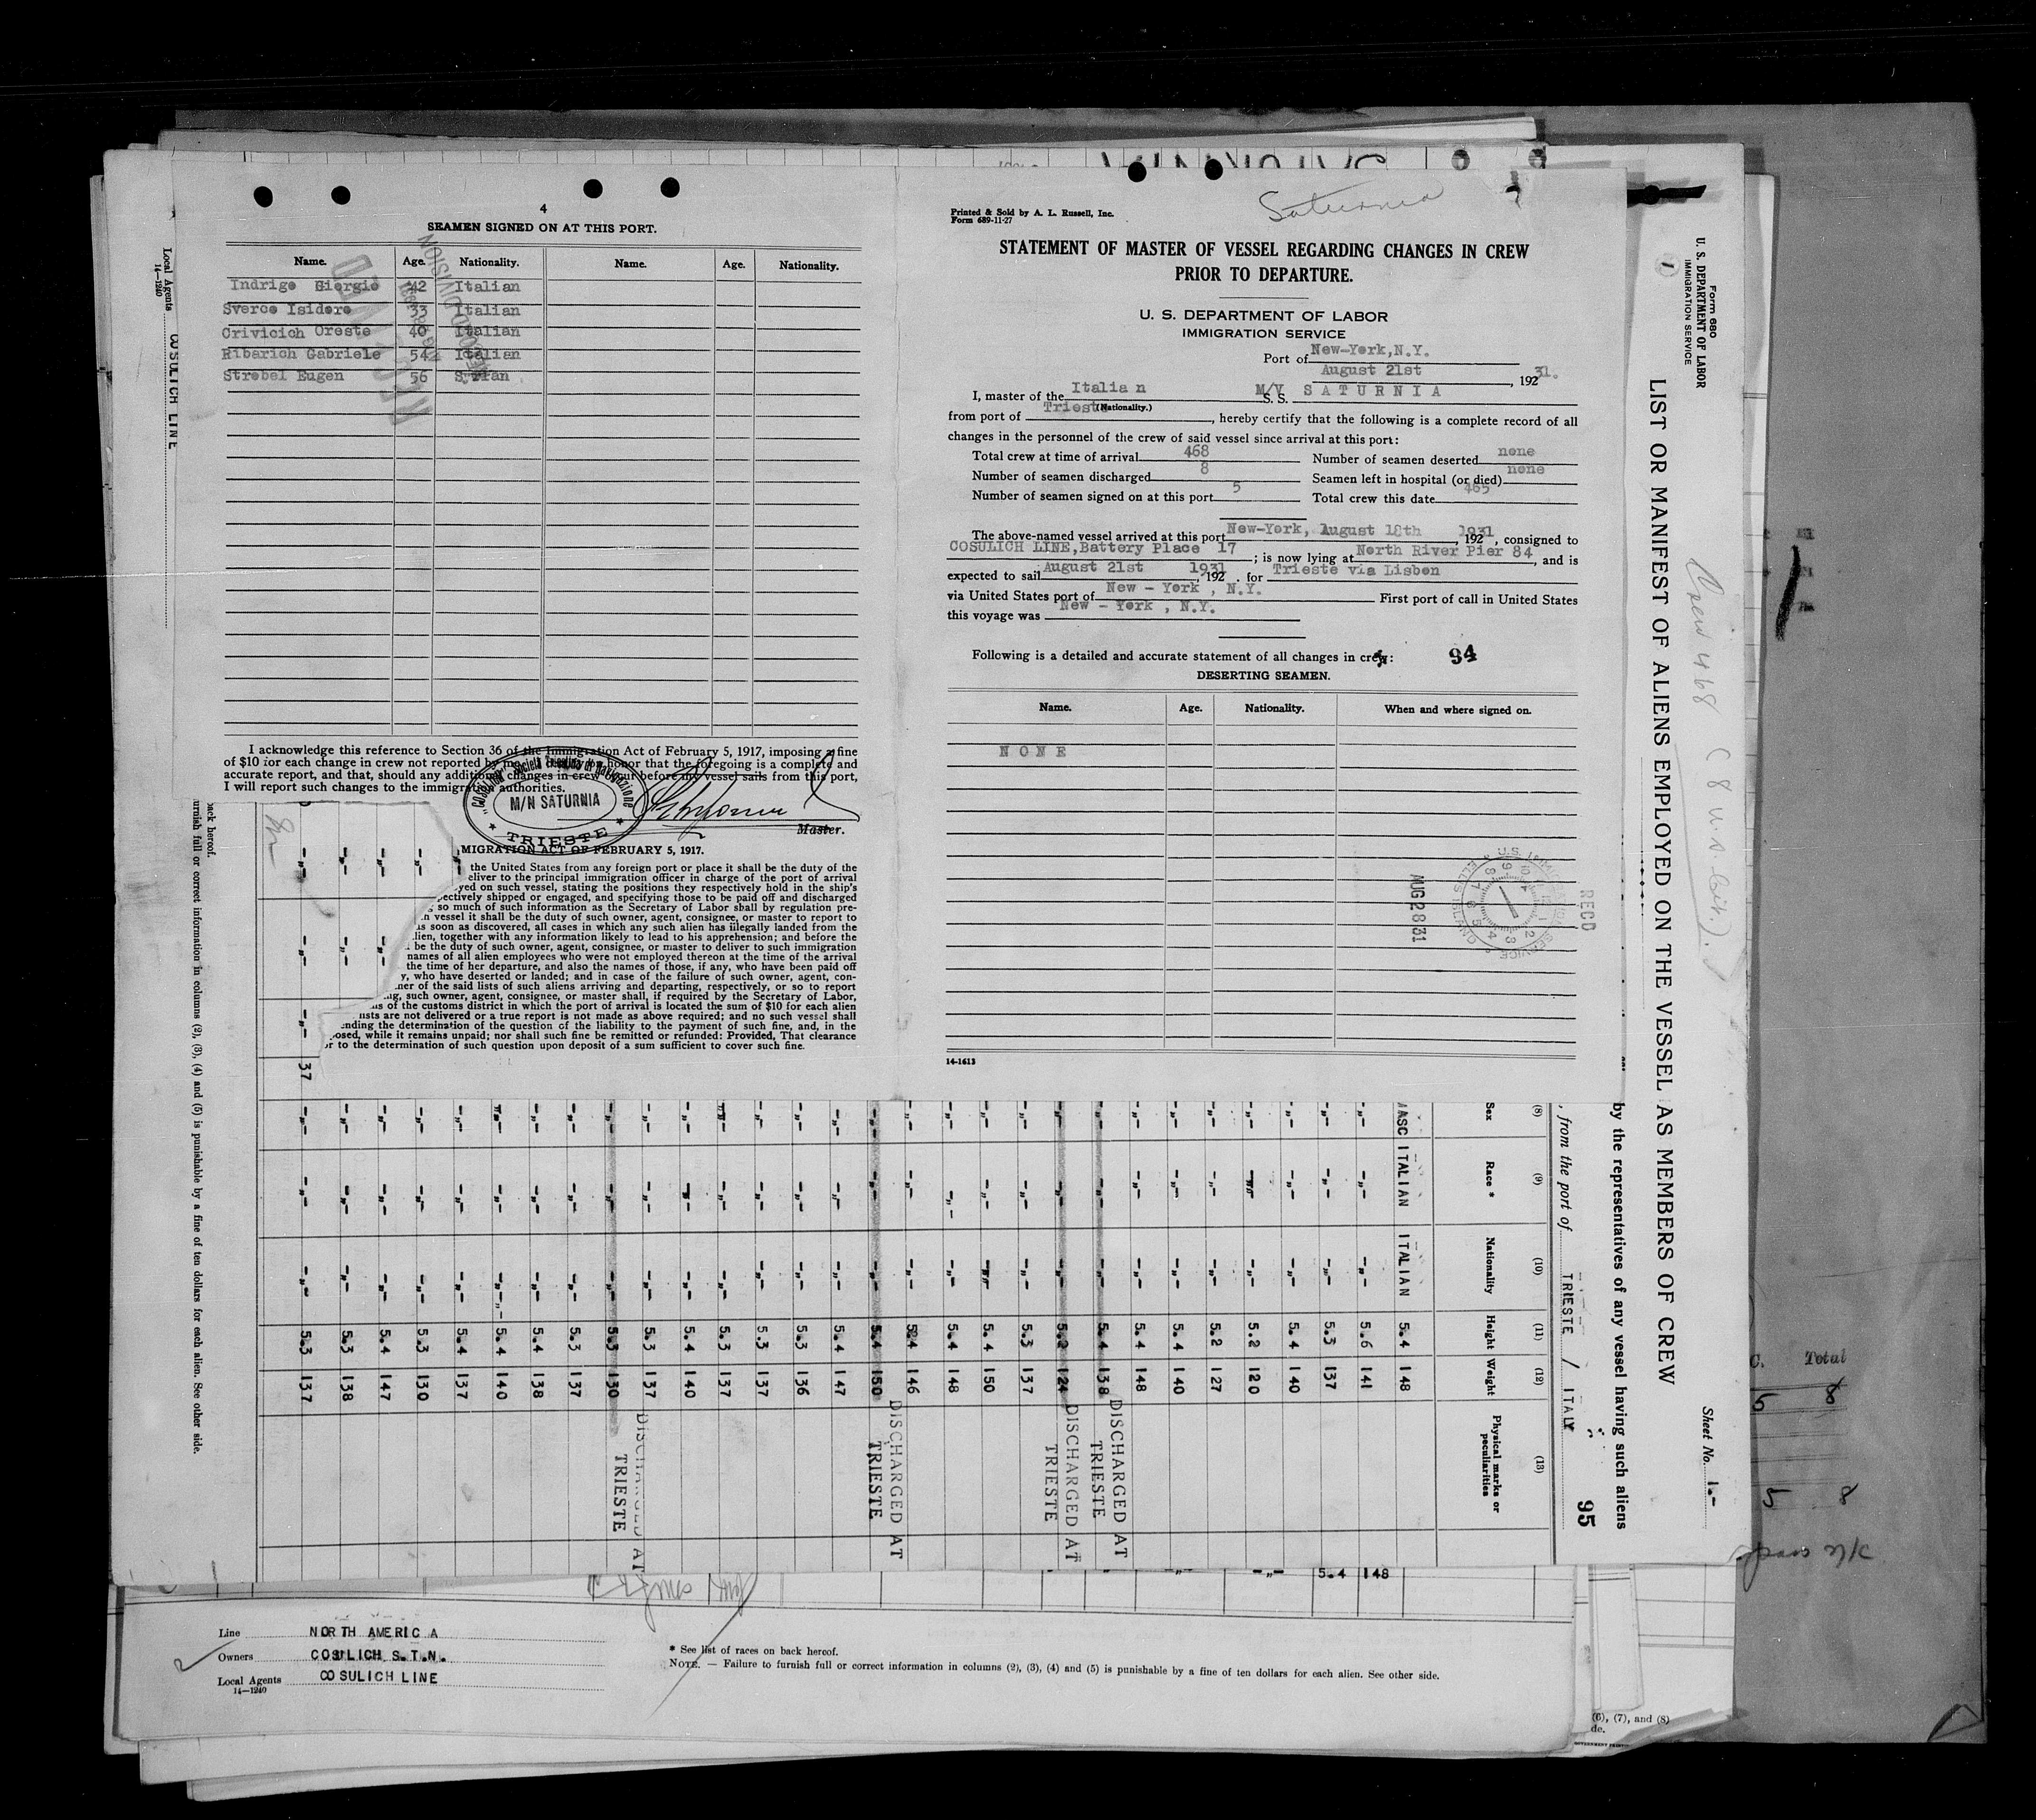 4
SEAMEN SIGNED ON AT THIS PORT.
Name. Age. Nationality. Name. Age. Nationality.
Indrigo Giorgio 42 Italian
Sverco Isidoro 33 Italian
Crivicich Oreste 40 Italian
Ribarich Gabriele 54 Italian
Strobel Eugen 56
I acknowledge this reference to Section 36 of the Immigration Act of February 5, 1917, imposing a fine
of $10 for each change in crew not reported by me. honor that the foregoing is a complete and
accurate report, and that, should any additional changes in crew occur before my vessel sails from this port,
I will report such changes to the immigration authorities.
M/N SATURNIA
TRIESTE
Master.
MIGRATION ACT OF FEBRUARY 5, 1917.
the United States from any foreign port or place it shall be the duty of the
eliver to the principal immigration officer in charge of the port of arrival
yed on such vessel, stating the positions they respectively hold in the ship's
pectively shipped or engaged, and specifying those to be paid off and discharged
so much of such information as the Secretary of Labor shall by regulation pre-
n vessel it shall be the duty of such owner, agent, consignee, or master to report to
as soon as discovered, all cases in which any such alien has illegally landed from the
lien, together with any information likely to lead to his apprehension; and before the
be the duty of such owner, agent, consignee, or master to deliver to such immigration
names of all alien employees who were not employed thereon at the time of the arrival
the time of her departure, and also the names of those, if any, who have been paid off
y, who have deserted or landed; and in case of the failure of such owner, agent, con-
ner of the said lists of such aliens arriving and departing, respectively, or so to report
ng, such owner, agent, consignee, or master shall, if required by the Secretary of Labor,
us of the customs district in which the port of arrival is located the sum of $10 for each alien
lists are not delivered or a true report is not made as above required; and no such vessel shall
ending the determination of the question of the liability to the payment of such fine, and, in the
posed, while it remains unpaid; nor shall such fine be remitted or refunded: Provided, That clearance
or to the determination of such question upon deposit of a sum sufficient to cover such fine.
Saturnia
Printed & Sold by A. L. Russell, Inc.
Form 689-11-27
STATEMENT OF MASTER OF VESSEL REGARDING CHANGES IN CREW
PRIOR TO DEPARTURE.
U. S. DEPARTMENT OF LABOR
IMMIGRATION SERVICE
Port of New-York,N.Y.
August 21st, 1931.
I, master of the Italian M/V S.S. SATURNIA
(Nationality.)
from port of Trieste, hereby certify that the following is a complete record of all
changes in the personnel of the crew of said vessel since arrival at this port:
Total crew at time of arrival 468 Number of seamen deserted none
Number of seamen discharged 8 Seamen left in hospital (or died) none
Number of seamen signed on at this port 5 Total crew this date 465
The above-named vessel arrived at this port New-York, August 18th, 1931, consigned to
COSULICH LINE,Battery Place 17; is now lying at North River Pier 84, and is
expected to sail August 21st 1931, 192 . for Trieste via Lisbon
via United States port of New - York , N.Y. First port of call in United States
this voyage was New - York , N.Y.
Following is a detailed and accurate statement of all changes in crew: 94
DESERTING SEAMEN.
Name. Age. Nationality. When and where signed on.
NONE
AUG 28 31
RECD
14-1613
Form 680
U. S. DEPARTMENT OF LABOR
IMMIGRATION SERVICE
1
LIST OR MANIFEST OF ALIENS EMPLOYED ON THE VESSEL AS MEMBERS OF CREW
Sheet No. 1.-
Crew 468 (8 U.S. Cit.).
by the representatives of any vessel having such aliens
, from the port of TRIESTE / ITALY
95
(8) (9) (10) (11) (12) (13)
Sex Race * Nationality Height Weight Physical marks or peculiarities
MASC ITALIAN ITALIAN 5.4 148
-"- -"- -"- 5.6 141
-"- -"- -"- 5.3 137
-"- -"- -"- 5.4 140
-"- -"- -"- 5.2 120
-"- -"- -"- 5.2 127
-"- -"- -"- 5.4 140
-"- -"- -"- 5.4 148
-"- -"- -"- 5.4 138 DISCHARGED AT TRIESTE
-"- -"- -"- 5.2 124 DISCHARGED AT TRIESTE
-"- -"- -"- 5.3 137
-"- -"- -"- 5.4 150
-"- -"- -"- 5.4 148
-"- -"- -"- 5.4 146
-"- -"- -"- 5.4 150 DISCHARGED AT TRIESTE
-"- -"- -"- 5.4 147
-"- -"- -"- 5.3 136
-"- -"- -"- 5.3 137
-"- -"- -"- 5.3 137
-"- -"- -"- 5.4 140
-"- -"- -"- 5.3 137
-"- -"- -"- 5.3 130 DISCHARGED AT TRIESTE
-"- -"- -"- 5.3 137
-"- -"- -"- 5.4 138
-"- -"- -"- 5.4 140
-"- -"- -"- 5.4 137
-"- -"- -"- 5.3 130
-"- -"- -"- 5.4 147
-"- -"- -"- 5.3 138
37 -"- -"- -"- 5.3 137
Local Agents COSULICH LINE
14-1240
ack hereof.
urnish full or correct information in columns (2), (3), (4) and (5) is punishable by a fine of ten dollars for each alien. See other side.
-"- -"- 5.4 148
Line NORTH AMERICA
Owners COSULICH S.T.N.
Local Agents COSULICH LINE
14-1240
* See list of races on back hereof.
NOTE. — Failure to furnish full or correct information in columns (2), (3), (4) and (5) is punishable by a fine of ten dollars for each alien. See other side.
(6), (7), and (8)
de.
C. Total
5 8
5 8